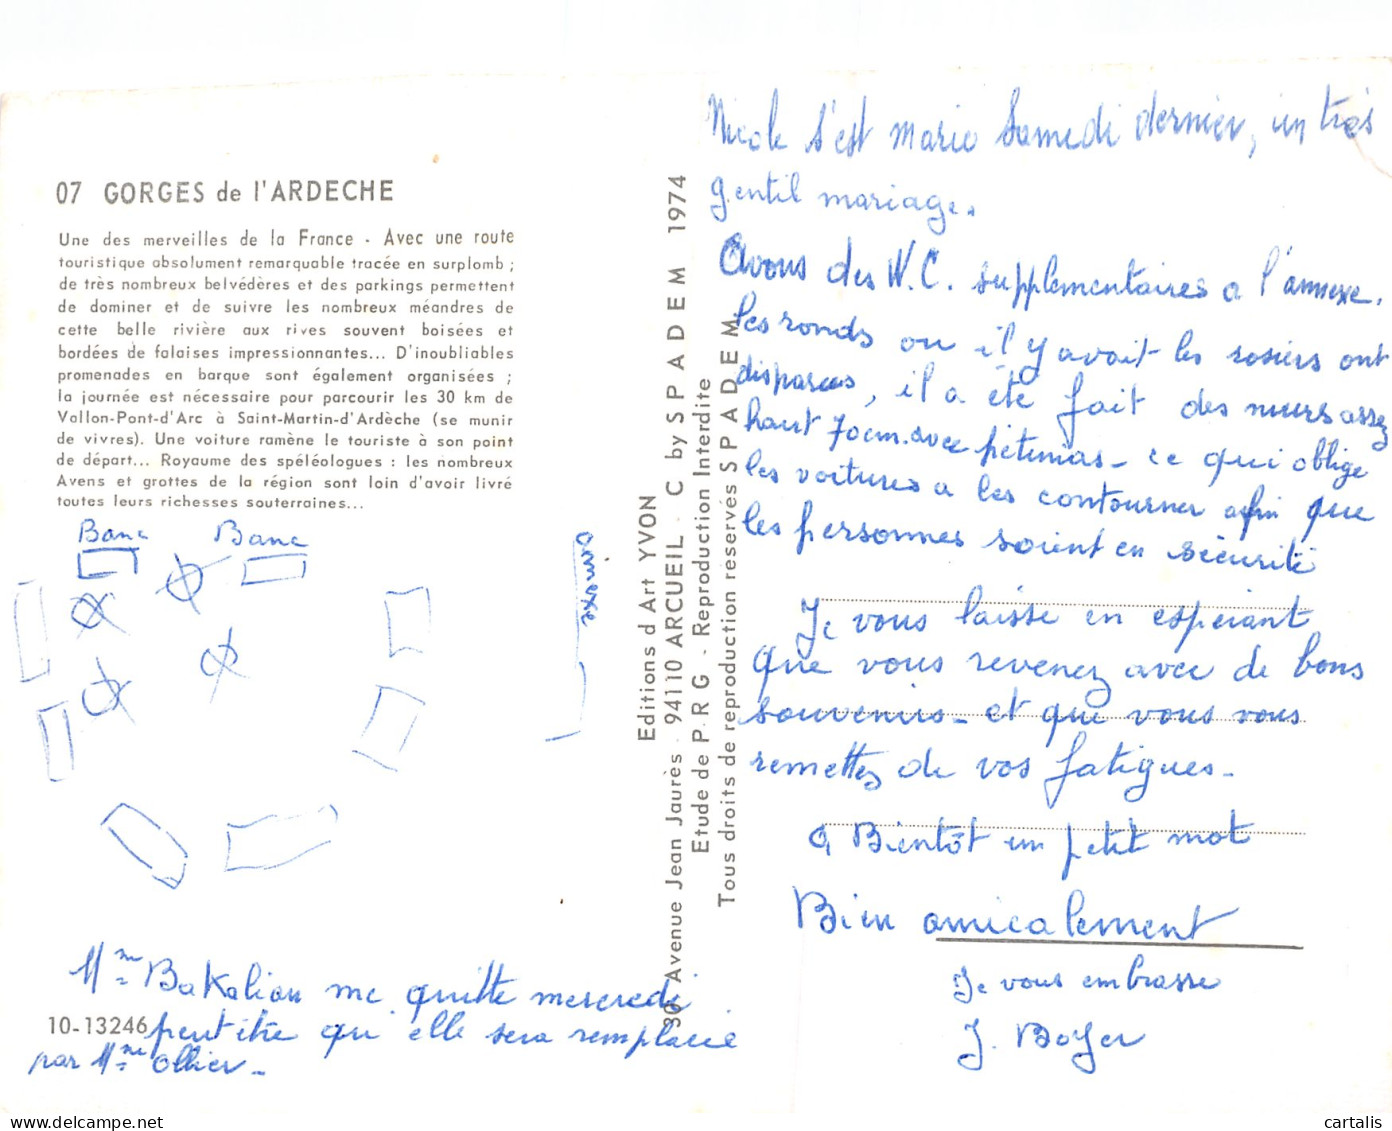 07 GORGES de l'ARDECHE
Une des merveilles de la France - Avec une route
touristique absolument remarquable tracée en surplomb ;
de très nombreux belvédères et des parkings permettent
de dominer et de suivre les nombreux méandres de
cette belle rivière aux rives souvent boisées et
bordées de falaises impressionnantes... D'inoubliables
promenades en barque sont également organisées ;
la journée est nécessaire pour parcourir les 30 km de
Vallon-Pont-d'Arc à Saint-Martin-d'Ardèche (se munir
de vivres). Une voiture ramène le touriste à son point
de départ... Royaume des spéléologues : les nombreux
Avens et grottes de la région sont loin d'avoir livré
toutes leurs richesses souterraines...
Banc Banc
annexe
Mme Bakalian me quitte mercredi
peut être qu'elle sera remplacée
par Mme Ollier -
10-13246
Editions d'Art YVON
30 Avenue Jean Jaurès - 94110 ARCUEIL - C by SPADEM 1974
Etude de P R G - Reproduction Interdite
Tous droits de reproduction reservés SPADEM
Nicole s'est marie Samedi dernier, un très
gentil mariage.
Avons des W.C. supplementaires a l'annexe.
Les ronds ou il y avait les rosiers ont
disparus, il a été fait des murs assez
haut 70cm. avec petunias - ce qui oblige
les voitures a les contourner afin que
les personnes soient en sécurité
Je vous laisse en espérant
que vous revenez avec de bons
souvenirs - et que vous vous
remettez de vos fatigues -
A Bientôt un petit mot
Bien amicalement
Je vous embrasse
J. Boyer
cartalis